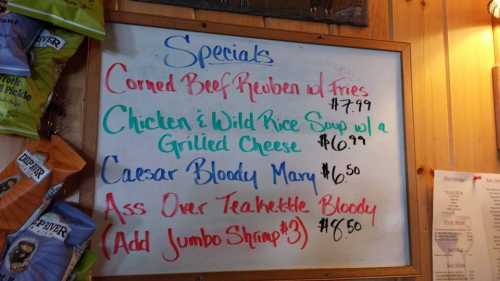 Specials
Corned Beef Reuben w/ Fries
$7.99
Chicken & Wild Rice Soup w/ a
Grilled Cheese $6.99
Caesar Bloody Mary $6.50
Ass Over Teakettle Bloody
(Add Jumbo Shrimp $3) $8.50
DEEP RIVER
Pickle